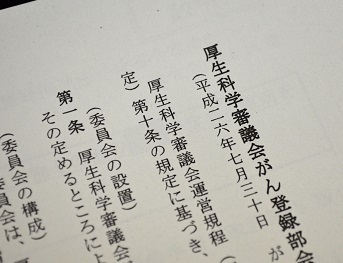 厚生科学審議会がん登録部会
（平成二六年七月三十日　が
厚生科学審議会運営規程（
定）第十条の規定に基づき、
（委員会の設置）
第一条　厚生科学審議会
その定めるところによ
（委員会の構成）
委員会は、